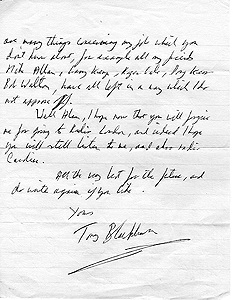 are many things concerning my job which you
don't know about, for example all my friends
Mike Allen, Tommy Vance, Roger Ross
Bob Walton, have all left in a way which I do
not approve of.
Well Alan, I hope now that you will forgive
me for going to Radio London, and indeed I hope
you will still listen to me, and also Radio
Caroline.
All the very best for the future, and
do write again if you like.
Yours
Tony Blackburn